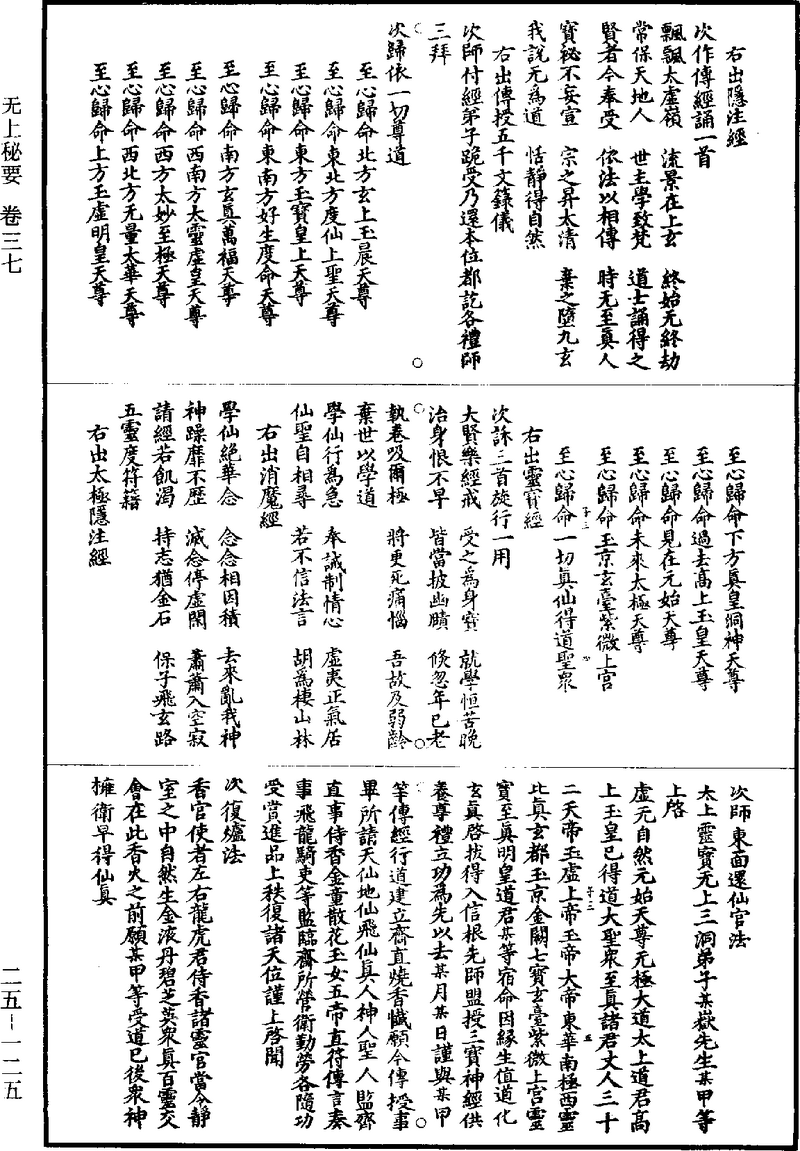 无上秘要 卷三七
二五-一二五
右出隱注經
次作傳經誦一首
飄飄太虛嶺 流景在上玄 終始无終劫
常保天地人 世主學致梵 道士誦得之
賢者今奉受 依法以相傳 時无至真人
寶祕不妄宣 宗之昇太清 棄之墮九玄
我說无為道 恬靜得自然
右出傳授五千文籙儀
次師付經弟子跪受乃還本位都訖各禮師
三拜
次歸依一切尊道
至心歸命北方玄上玉晨天尊
至心歸命東北方度仙上聖天尊
至心歸命東方玉寶皇上天尊
至心歸命東南方好生度命天尊
至心歸命南方玄真萬福天尊
至心歸命西南方太靈虛皇天尊
至心歸命西方太妙至極天尊
至心歸命西北方无量太華天尊
至心歸命上方玉虛明皇天尊
至心歸命下方真皇洞神天尊
至心歸命過去高上玉皇天尊
至心歸命見在元始天尊
至心歸命未來太極天尊
至心歸命玉京玄臺紫微上宮
至心歸命一切真仙得道聖眾
右出靈寶經
次詠三首旋行一用
大賢樂經戒 受之為身寶 就學恒苦晚
治身恨不早 皆當披幽賾 倏忽年已老
執卷吸爾極 將更死痛惱 吾故及弱齡
棄世以學道
學仙行為急 奉誡制情心 虛夷正氣居
仙聖自相尋 若不信法言 胡為棲山林
右出消魔經
學仙絕華念 念念相因積 去來亂我神
神躁靡不歷 滅念停虛閑 蕭蕭入空寂
請經若飢渴 持志猶金石 保子飛玄路
五靈度符籍
右出太極隱注經
次師東面還仙官法
太上靈寶无上三洞弟子某嶽先生某甲等
上啓
虛无自然元始天尊无極大道太上道君高
上玉皇已得道大聖眾至真諸君丈人三十
二天帝玉虛上帝玉帝大帝東華南極西靈
北真玄都玉京金闕七寶玄臺紫微上宮靈
寶至真明皇道君某等宿命因緣生值道化
玄真啓拔得入信根先師盟授三寶神經供
養尊禮立功為先以去某月某日謹與某甲
等傳經行道建立齋直燒香懺願今傳授事
畢所請天仙地仙飛仙真人神人聖人監齋
直事侍香金童散花玉女五帝直符傳言奏
事飛龍騎吏等監臨齋所營衛勤勞各隨功
受賞進品上秩復諸天位謹上啓聞
次復爐法
香官使者左右龍虎君侍香諸靈官當令靜
室之中自然生金液丹碧芝英眾真百靈交
會在此香火之前願某甲等受道已後眾神
擁衛早得仙真